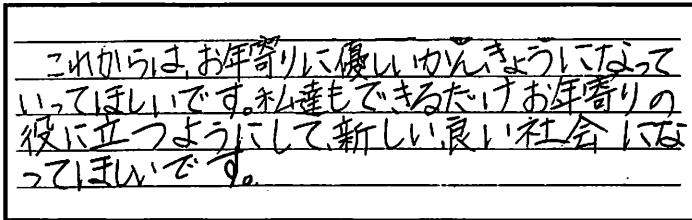 これからは、お年寄りに優しいかんきょうになって
いってほしいです。私達もできるだけお年寄りの
役に立つようにして、新しい良い社会にな
ってほしいです。